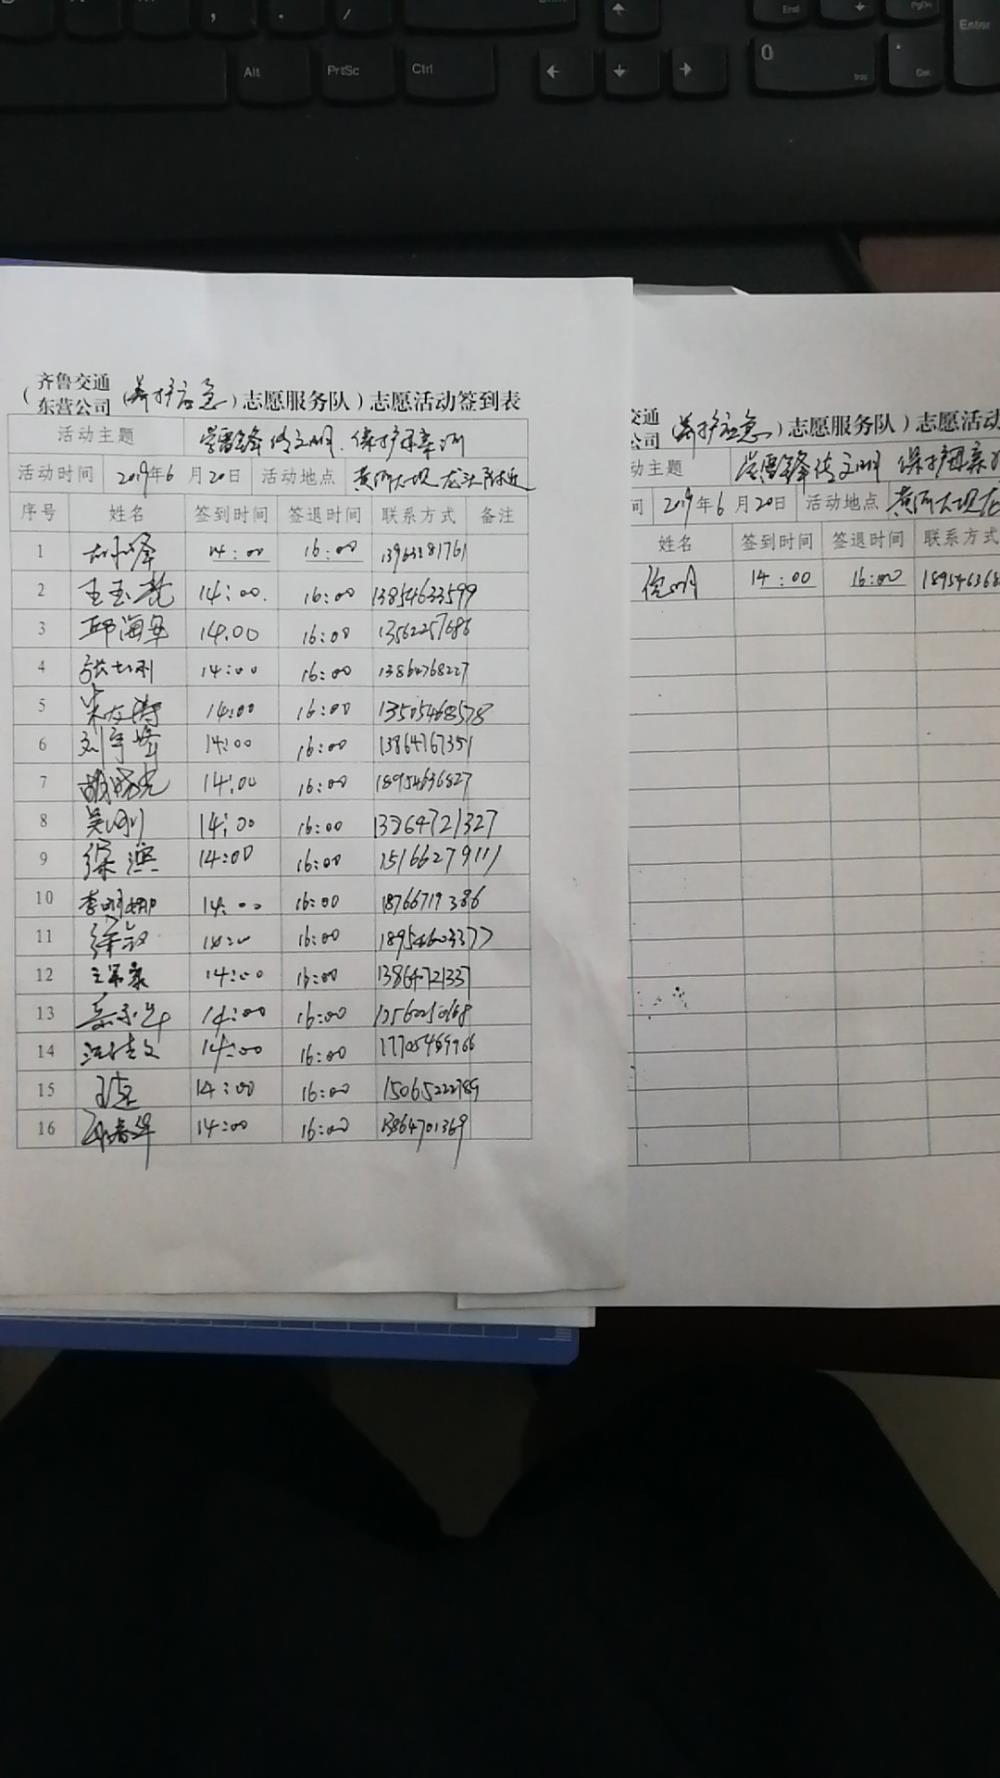 Alt PrtSc Ctrl
End PgDn Enter
0 Ins Del
齐鲁交通
东营公司
(养护应急)志愿服务队)志愿活动签到表
活动主题 学雷锋传文明 保护母亲河
活动时间 2019年6月20日 活动地点 黄河大坝龙头附近
序号 姓名 签到时间 签退时间 联系方式 备注
1 14:00 16:00 13963181761
2 14:00 16:00 13854633599
3 邱海军 14:00 16:00 13562257686
4 14:00 16:00 13864768227
5 14:00 16:00 13505468578
6 14:00 16:00 13864767351
7 胡晓光 14:00 16:00 18954636827
8 吴刚 14:00 16:00 13864721327
9 徐滨 14:00 16:00 15166279111
10 李明娜 14:00 16:00 18766719386
11 14:00 16:00 18954603377
12 14:00 16:00
13 14:00 16:00
14 14:00 16:00
15 14:00 16:00 15065222789
16 14:00 16:00 13864701369
交通
公司
(养护应急)志愿服务队)志愿活动
动主题 学雷锋传文明 保护母亲
间 2019年6月20日 活动地点 黄河大坝龙
姓名 签到时间 签退时间 联系方式
14:00 16:00 189546368